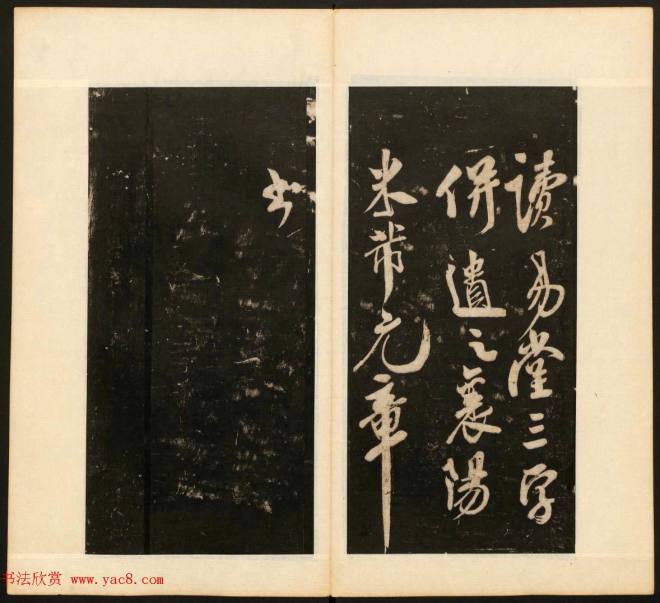 读易堂三字
併遺之襄陽
米芾元章
书
书法欣赏 www.yac8.com